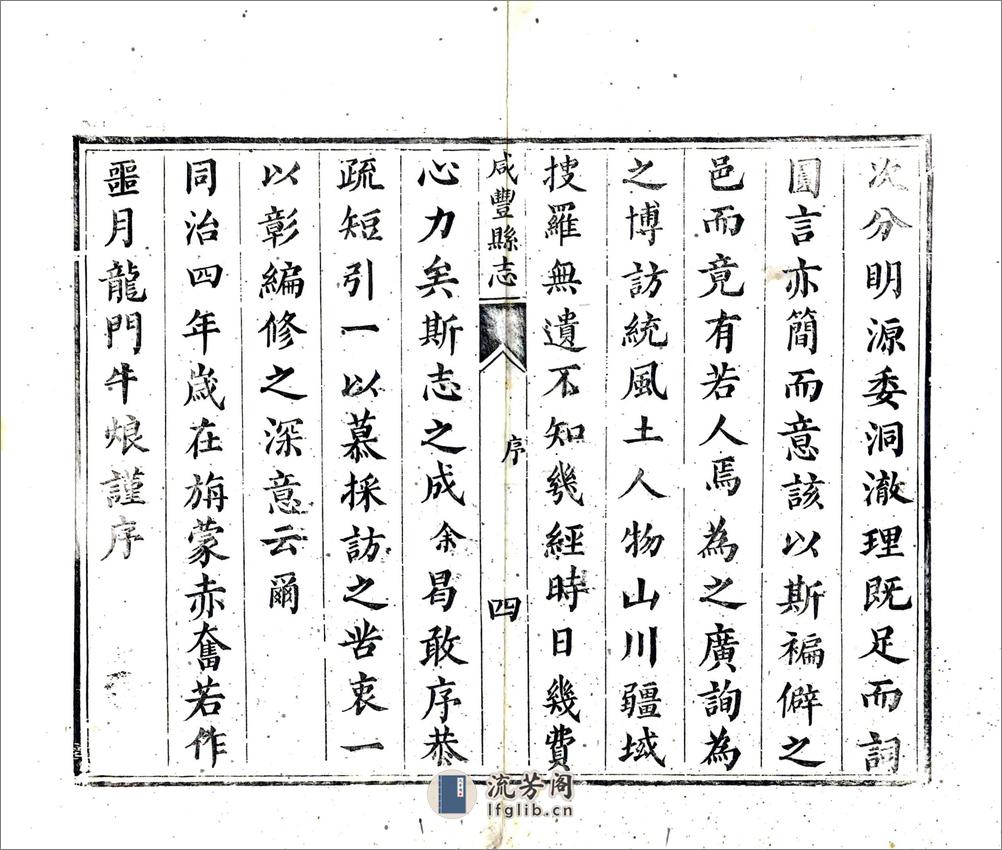 次分明源委洞澈理既足而詞
圓言亦簡而意該以斯褊僻之
邑而竟有若人焉為之廣詢為
之博訪統風土人物山川疆域
搜羅無遺不知幾經時日幾費
咸豐縣志
序
四
心力矣斯志之成余曷敢序恭
疏短引一以慕採訪之苦衷一
以彰編修之深意云爾
同治四年歲在旃蒙赤奮若作
噩月龍門牛烺謹序
流芳阁
lfglib.cn